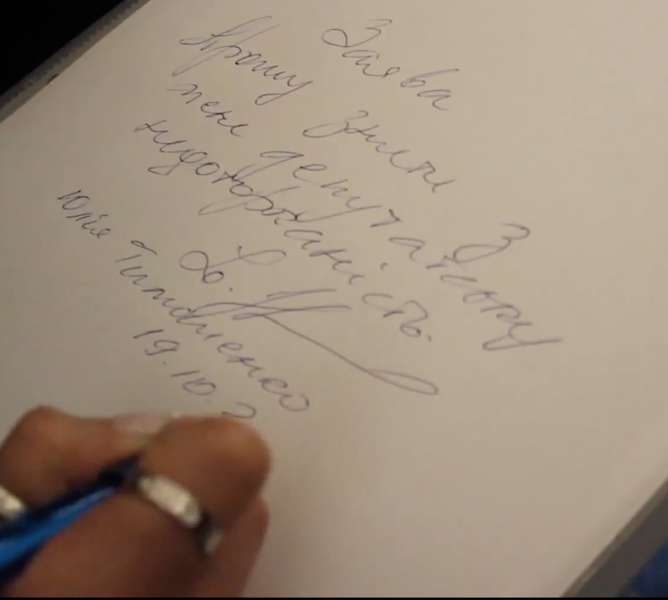 Заява
Прошу зняти з
мене депутатську
недоторканість.
Юлія Тимошенко
19.10.2